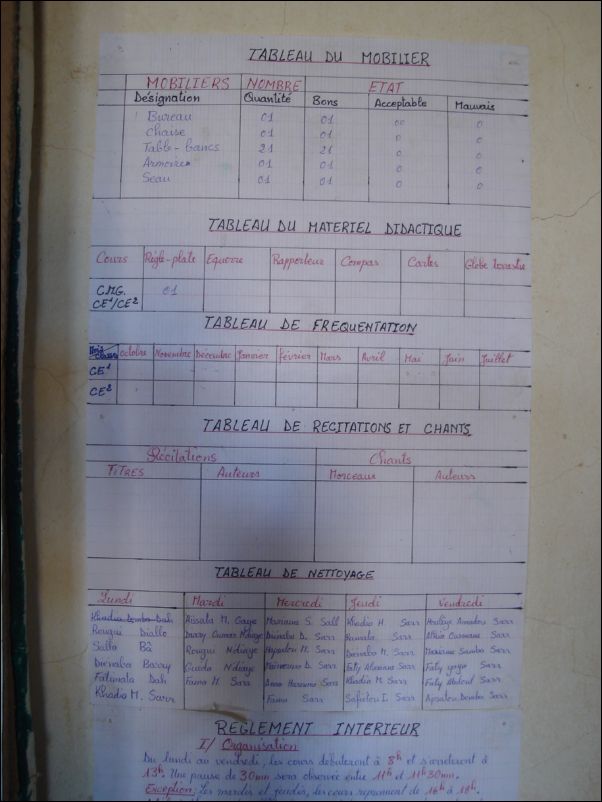 TABLEAU DU MOBILIER
MOBILIERS NOMBRE ETAT
Désignation Quantité Bons Acceptable Mauvais
Bureau 01 01 00 0
Chaise 01 01 0 0
Table-bancs 21 21 0 0
Armoire 01 01 0 0
Seau 01 01 0 0
TABLEAU DU MATERIEL DIDACTIQUE
Cours Règle-plate Equerre Rapporteur Compas Cartes Globe terrestre
C.M.G. 01
CE1/CE2
TABLEAU DE FREQUENTATION
Mois Classes Octobre Novembre Decembre Janvier Février Mars Avril Mai Juin Juillet
CE1
CE2
TABLEAU DE RECITATIONS ET CHANTS
Récitations Chants
TITRES Auteurs Morceaux Auteurs
TABLEAU DE NETTOYAGE
Lundi Mardi Mercredi Jeudi Vendredi
Khadia Demba Dah Aissata M. Gaye Mariama S. Sall Khadia H. Sarr Amadou Sarr
Rougui Diallo Oumar Ndiaye Dienaba D. Sarr Ramata Sarr Ousmane Sarr
Salla Bâ Rougui Ndiaye Hapsatou M. Sarr Dienaba M. Sarr Mariame Samba Sarr
Dienaba Barry Guida Ndiaye D. Sarr Faty Alassane Sarr Faty Sarr
Fatimata Dah Fama M. Sarr Sarr Khadia M. Sarr Faty Sarr
Khadia M. Sarr Fama Sarr Safiatou I. Sarr Apsatou Demba Sarr
REGLEMENT INTERIEUR
I/ Organisation
Du lundi au vendredi, les cours débuteront à 8h et s'arreteront à
13h. Une pause de 30mn sera observée entre 11h et 11h30mn.
Exception: Les mardis et jeudis, les cours reprennent de 16h à 18h.